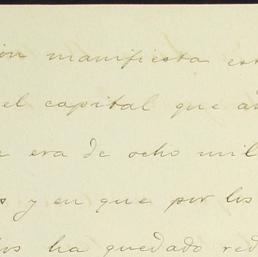 ón manifiesta est
el capital que a
era de ocho mil
s y en que por los
ios ha quedado red